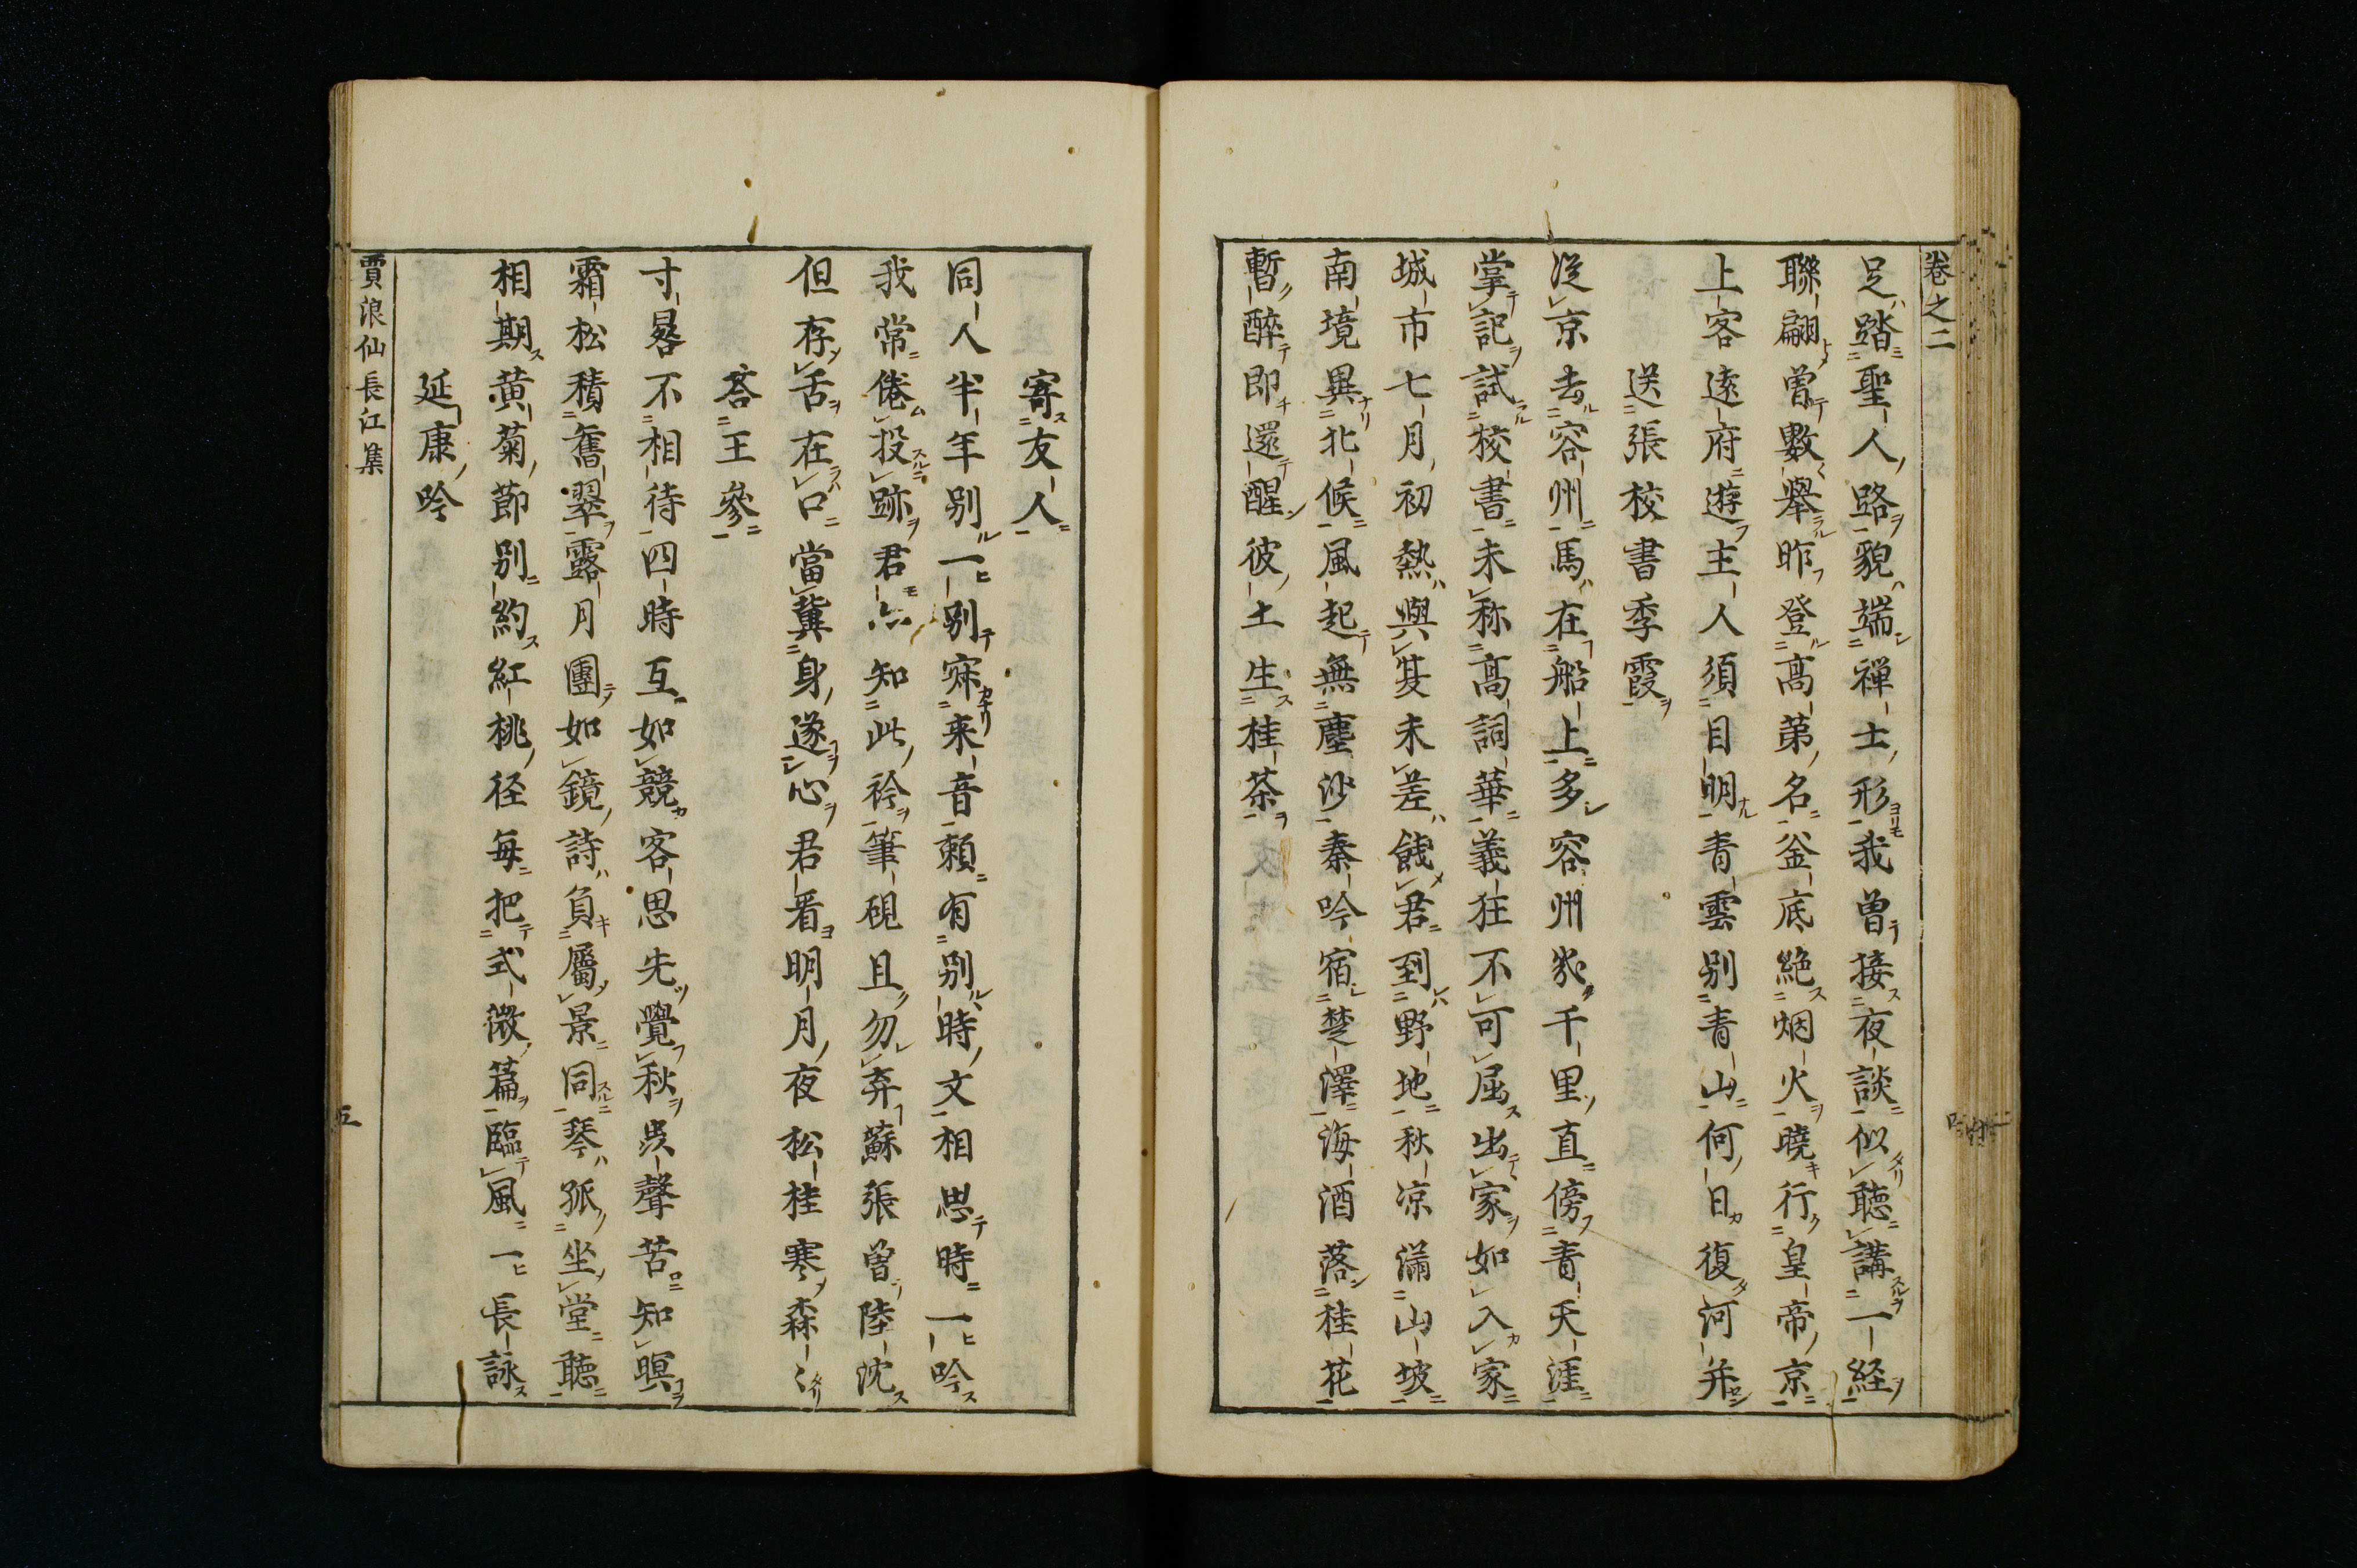 卷之二
足踏聖人路貌端禅士形我曽接夜談似聴講一経
聯翩曽數舉昨登髙苐名釜底絶烟火曉行皇帝京
上客遠府遊主人須目明青雲别青山何日復河并
送張校書季霞
従京去容州馬在船上多容州幾千里直傍青天涯
掌記試校書未称髙詞華義往不可屈出家如入家
城市七月初熱與夏未差餞君到野地秋凉滿山坡
南境異北候風起無塵沙秦吟宿楚澤海酒落桂花
暫醉即還醒彼土生桂茶
寄友人
同人半年别一别寐来音頼有别時文相思時一吟
我常倦投跡君亦知此衿筆硯且勿弃蘇張曽陸沈
但存舌在口當冀身遂心君看明月夜松桂寒森〻
荅王參
寸晷不相待四時互如競客思先覺秋虫聲苦知暝
霜松積舊翠露月團如鏡詩負屬景同琴孤坐堂聴
相期黄菊節别約紅桃径毎把式微篇臨風一長詠
延康吟
賈浪仙長江集
五